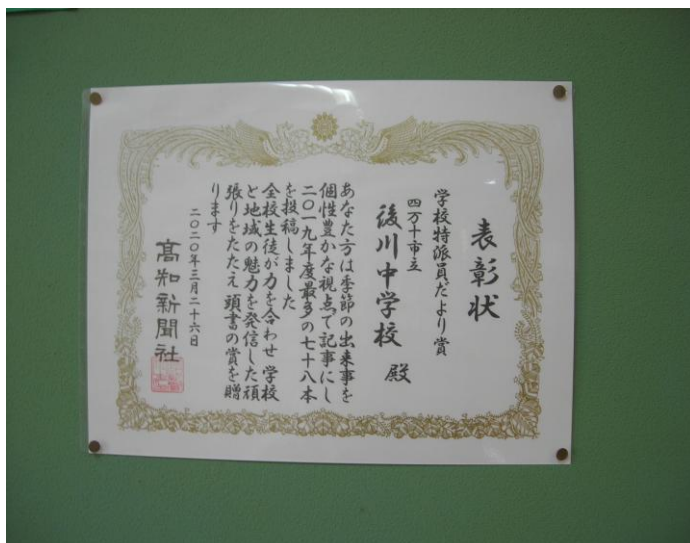 表彰状
学校特派員だより賞
四万十市立
後川中学校 殿
あなた方は季節の出来事を
個性豊かな視点で記事にし
二〇一九年度最多の七十八本
を投稿しました
全校生徒が力を合わせ 学校
と地域の魅力を発信した頑
張りをたたえ 頭書の賞を贈
ります
二〇二〇年三月二十六日
高知新聞社